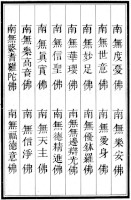 南無度憂佛 南無樂安佛
南無世意佛 南無愛身佛
南無妙足佛 南無優鉢羅佛
南無華瓔佛 南無無邊辯光佛
南無信聖佛 南無德精進佛
南無真實佛 南無天主佛
南無樂高音佛 南無信淨佛
南無婆耆羅陀佛 南無福德意佛